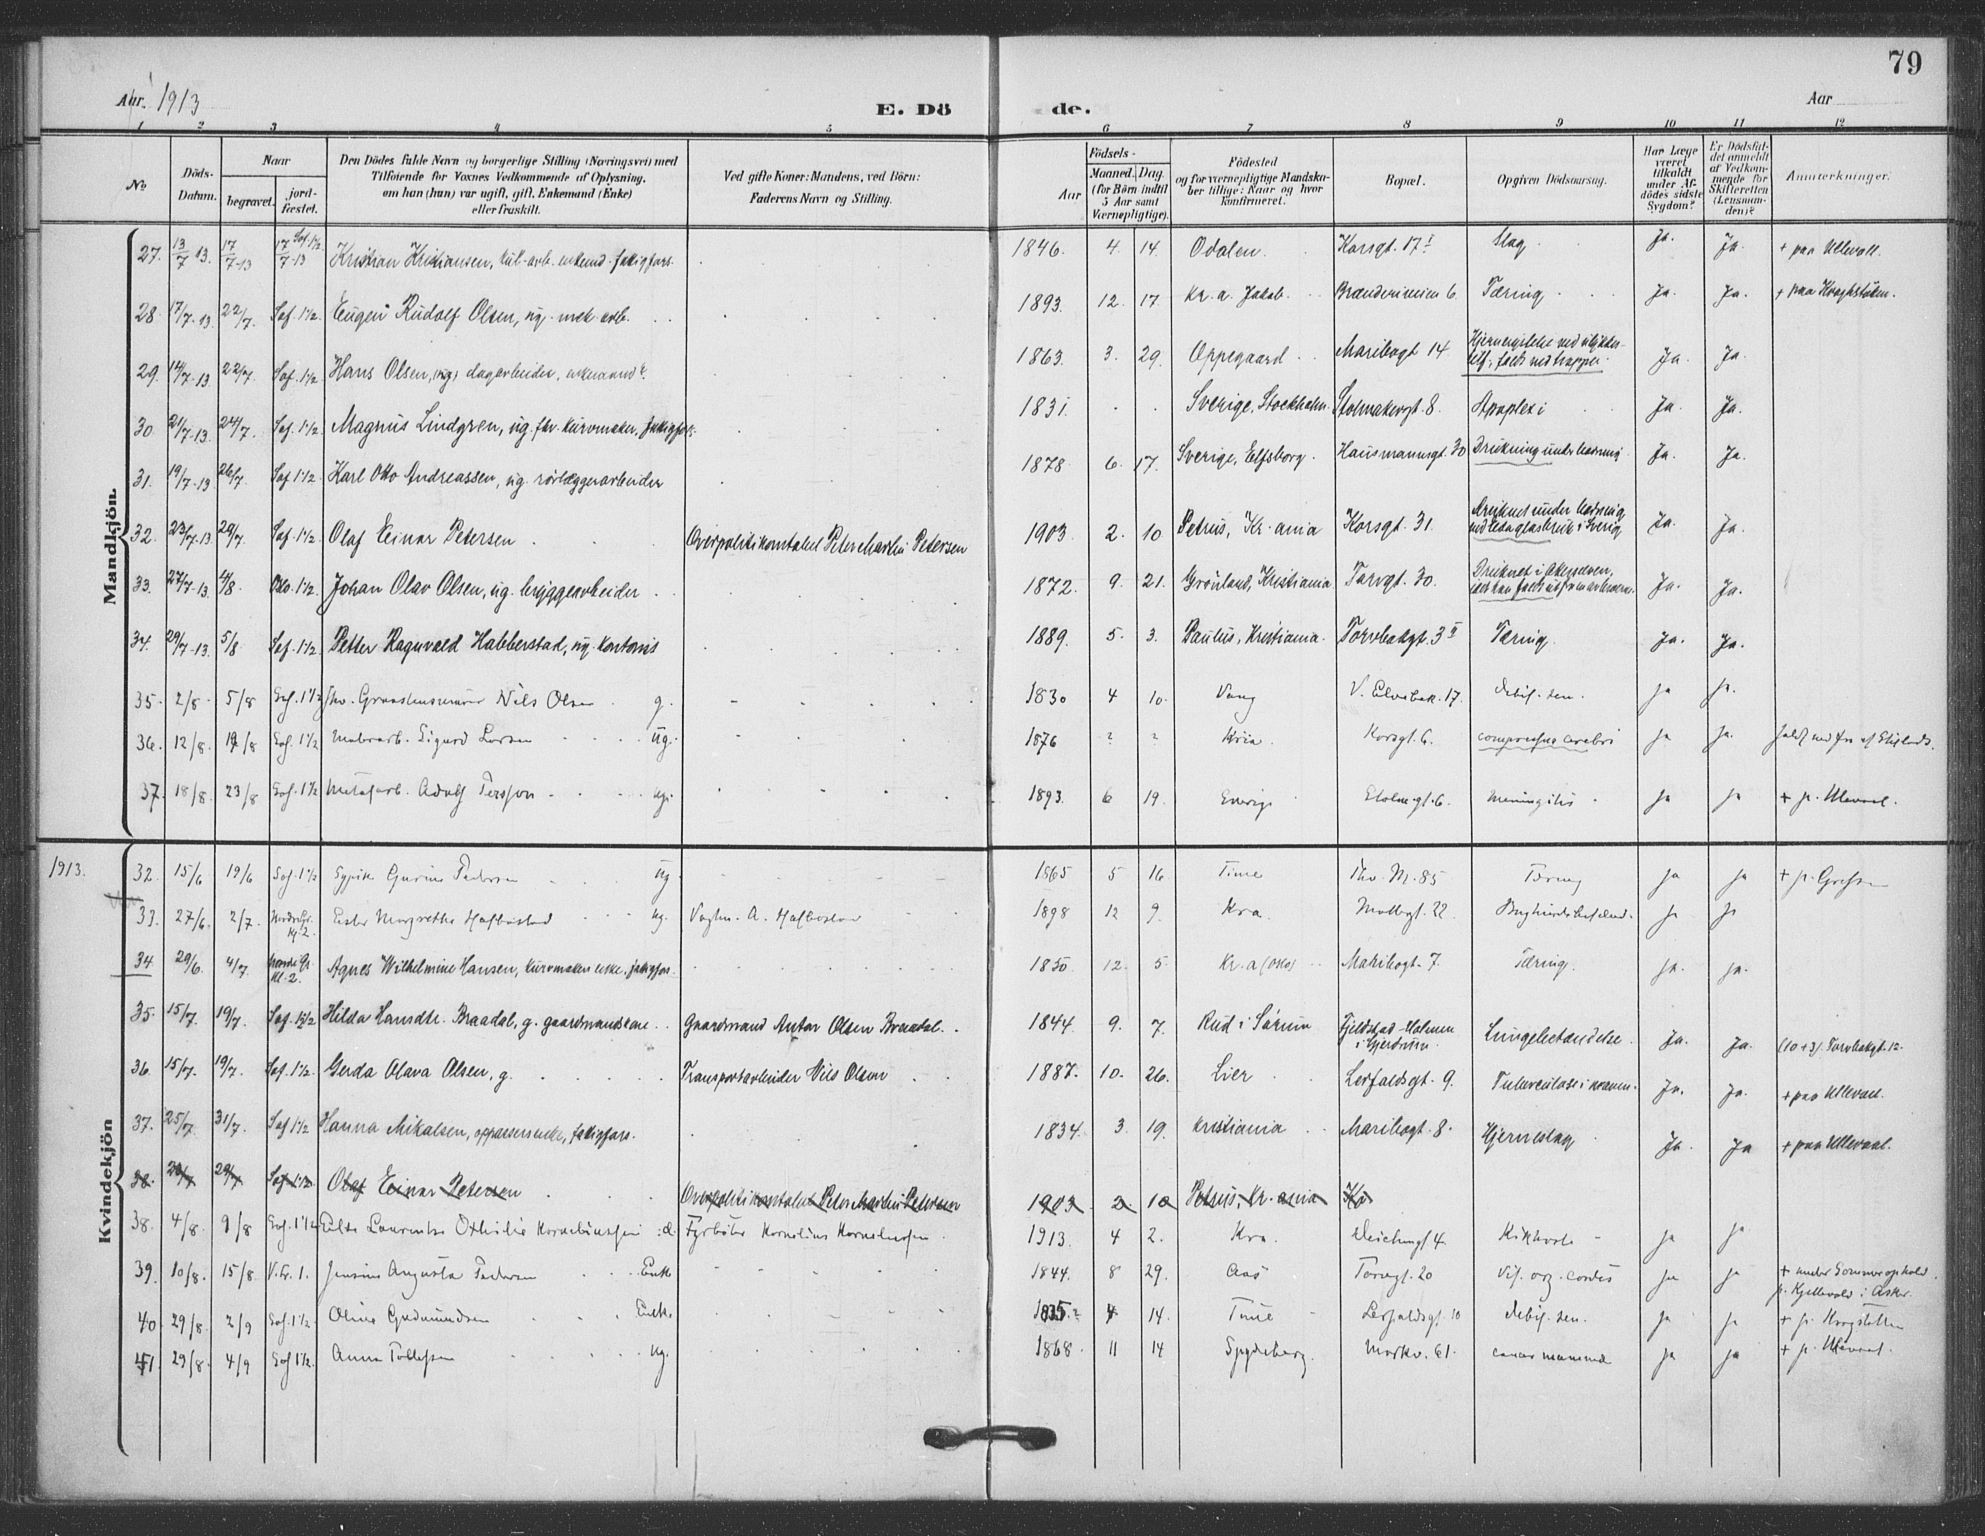 79
Aar. 1913
E. Dö
de.
Aar
1 2 3 4 5 6 7 8 9 10 11 12
No
Döds-Datum.
Naar begravet. jord-fæstet.
Den Dödes fulde Navn og borgerlige Stilling (Næringsvei) med Tilföiende for Voxnes Vedkommende af Oplysning, om han (hun) var ugift, gift, Enkemand (Enke) eller fraskilt.
Ved gifte Koner: Mandens, ved Börn: Faderens Navn og Stilling.
Födsels-
Aar
Maaned. Dag. (for Börn indtil 5 Aar samt Værnepligtige).
Födested og for værnepligtige Mandska-ber tillige: Naar og hvor konfirmeret.
Bopæl.
Opgiven Dödsaarsag.
Har Læge været tilkaldt under Af-dödes sidste Sygdom?
Er Dödsfal-det anmeldt af Vedkom-mende for Skifteretten (Lensman-den)?
Anmerkninger.
Mandkjön.
27. 13/7 13. 17/7-13 17/7-13 Sof. 1 1/2 Kristian Kristiansen, enkemd. fattigfors. 1846. 4 14. Odalen. Korsgt. 17 I Slag Ja. Ja. + paa Ullevaal.
28. 17/7-13. 22/7. Sof. 1 1/2. Eugen Rudolf Olsen, ug. mek. arb. 1893. 12. 17. Kr.a. Jakob. Brænderiveien 6. Tæring Ja. Ja. + paa Krohgstøtten.
29. 14/7-13 22/7. Sof. 1 1/2 Hans Olsen, (ug.) dagarbeider, enkemand? 1863. 3. 29. Oppegaard Maribogt 14. Hjernerystelse ved ulykkes-tilf., faldt ned trappe. Ja. Ja.
30. 21/7-13. 24/7. Sof. 1 1/2. Magnus Lindgren, ug. fhv. kurvmaker, fattigfors. 1831. Sverige, Stockholm. Stolmakergt. 8. Apoplexi Ja. Ja.
31. 19/7-13 26/7. Sof. 1 1/2 Karl Otto Andreassen, ug. rørlæggerarbeider 1878. 6. 17. Sverige, Elfsborg. Hausmannsgt. 30 Drukning under badning Ja. Ja.
32. 23/7-13 29/7. Sof. 1 1/2. Olaf Einar Petersen Overpolitikonstabel Peter Martin Petersen 1903. 2. 10. Petrus, Kr.ania Korsgt. 31. Druknet under badning ved Eda glasbruk i Sverig Ja. Ja.
33. 27/7-13. 4/8. Oslo. 1 1/2 Johan Olav Olsen, ug. bryggearbeider 1872. 9. 21. Grønland, Kristiania Torvgt. 30. Druknet i Akerselven, idet han faldt ut Ja. Ja.
34. 29/7-13. 5/8 Sof. 1 1/2. Petter Ragnvald Habberstad, ug. kontorist 1889. 5. 3. Paulus, Kristiania. Torvbakgt. 3 II Tæring. Ja. Ja.
35. 2/8. 5/8 Sof. 1 1/2 fhv. Nils Olsen g. 1830 4 10. Vang V. Elvebak. 17. debil. sen. ja ja.
36. 12/8. 19/8 Sof. 1 1/2 Sigurd Larsen ug. 1876 ? ? Kria. Korsgt. 6. compressio cerebri ja ja.
37. 18/8. 23/8 Sof. 1 1/2 Adolf Persson ug. 1893. 6 19. Sverige Stolm.gt. 6. meningitis ja ja + p. Ullevaal.
Kvindekjön
1913. 32. 15/6 19/6 Sof. 1 1/2 Gurine Pedersen ug 1865 5 16 Time Thv. M. 85 Tæring ja ja + p. Grefsen
33. 27/6. 2/7. Nordre Gr. kl. 2. Ester Margrethe Hafbostad ug. Vogtm. A. Hafbostad 1898 12 9. Kra. Møllergt. 22 ja ja
34 29/6. 4/7. Nordre Gr. kl. 2. Agnes Wilhelmine Hansen, kurvmakers enke, fattigfors. 1850. 12. 5 Kr.a (Oslo) Maribogt. 7. Tæring. Ja. Ja.
35. 15/7. 19/7. Sof. 1 1/2 Hilda Hansdtr. Braadal, g. gaardmandskone Gaardmand Anton Olsen Braadal. 1844. 9. 7. Rud i Sørum i Gjerdrum. Lungebetændelse. Ja. Ja. (10+3) Torvbakgt. 12.
36. 15/7. 19/7. Sof. 1 1/2. Gerda Olava Olsen, g. Transportarbeider Nils Olsen 1887. 10. 26. Lier Leirfaldsgt. 9. Ja. Ja. + paa Ullevaal.
37. 25/7. 31/7. Sof. 1 1/2 Hanna Mikalsen, oppassersenke, fattigfors. 1834. 3. 19. Kristiania Maribogt. 8. Hjerneslag Ja. Ja + paa Ullevaal.
38. 23/7 29/7 Sof. 1 1/2 Olaf Einar Petersen Overpolitikonstabel Peter Martin Petersen 1903. 2. 10 Petrus, Kr.ania Ko
38. 4/8. 9/8 Sof. 1 1/2 Othilie Korneliussen d. Fyrbøter Kornelius Korneliussen. 1913. 4 2. Kra. Deichmsgt 4. Kikhoste ja ja
39. 10/8. 15/8 V. Gr. 1. Jensine Augusta Pedersen Enke 1844. 8 29. Aas Torvgt. 20 Vit. org. cordis ja ja + under Sommerophold p. Kjellevold i Asker.
40. 29/8. 2/9 Sof. 1 1/2 Oline Gudmundsen Enke. 1835? 4 14. Time Leirfaldsgt. 10 debil. sen. ja ja + p. Krogstøtten
41. 29/8. 4/9 Sof. 1 1/2. Anna Tollefsen ug. 1868. 11 14 Spydeberg. Markv. 61. cancer mammae ja ja + p. Ullevaal.